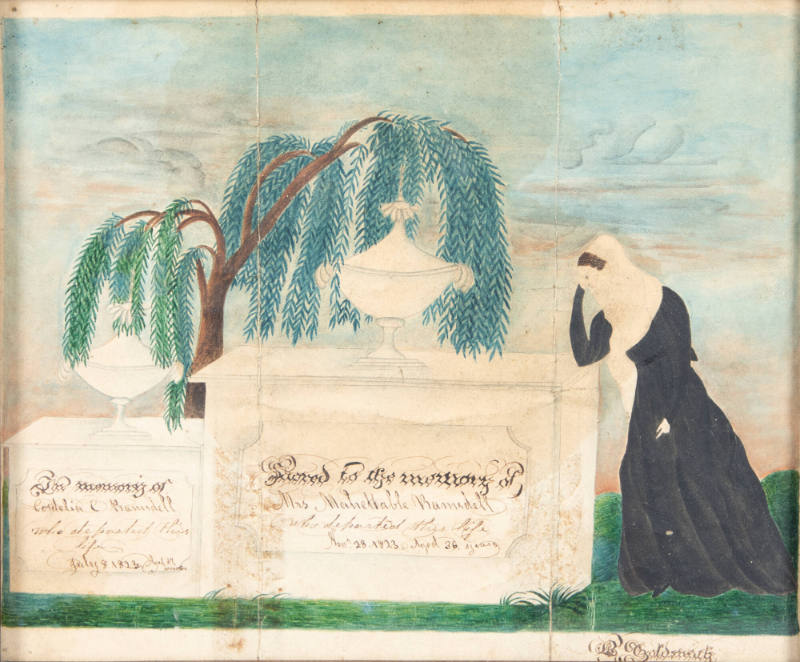 In memory of
Cordelia C Ramsdell
who departed this
life
July 8 1823 Aged 17
months
Sacred to the memory of
Mrs Mahettable Ramsdell
who departed this life
Nov 28 1823 Aged 36 years